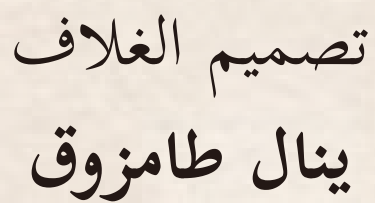 تصميم الغلاف
ينال طامزوق